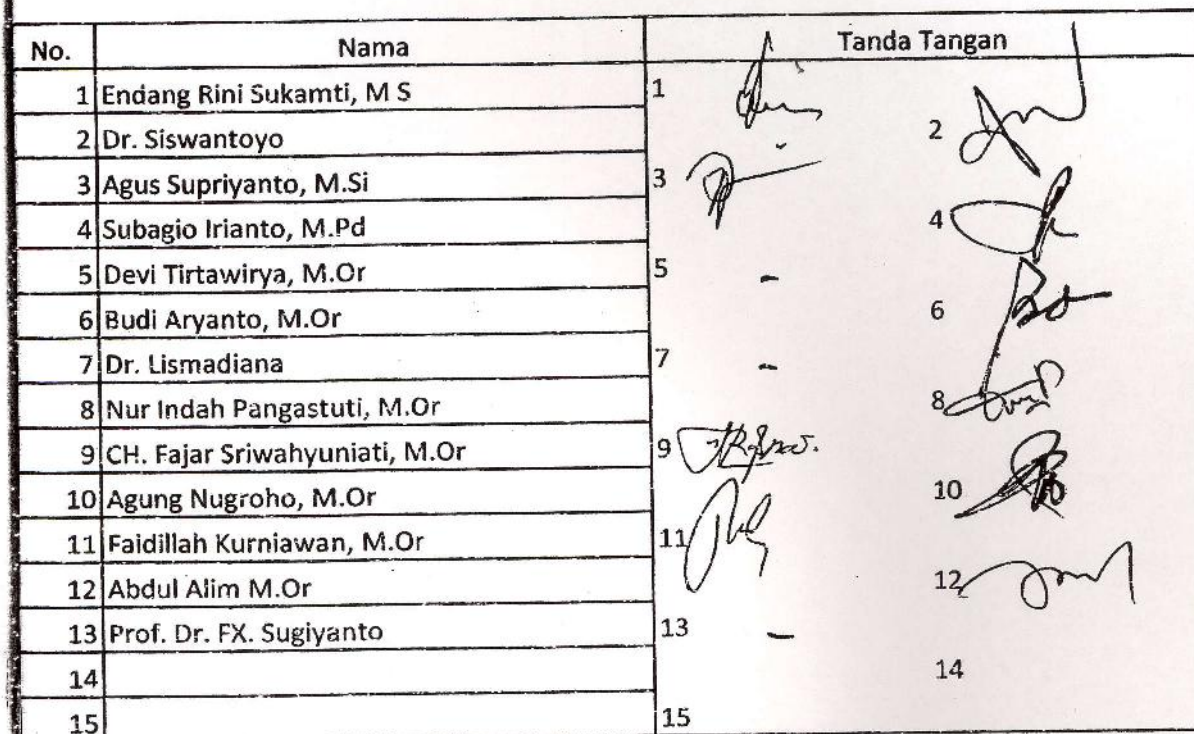 No. Nama Tanda Tangan
1 Endang Rini Sukamti, M S 1
2 Dr. Siswantoyo 2
3 Agus Supriyanto, M.Si 3
4 Subagio Irianto, M.Pd 4
5 Devi Tirtawirya, M.Or 5 -
6 Budi Aryanto, M.Or 6
7 Dr. Lismadiana 7 -
8 Nur Indah Pangastuti, M.Or 8
9 CH. Fajar Sriwahyuniati, M.Or 9
10 Agung Nugroho, M.Or 10
11 Faidillah Kurniawan, M.Or 11
12 Abdul Alim M.Or 12
13 Prof. Dr. FX. Sugiyanto 13 -
14 14
15 15